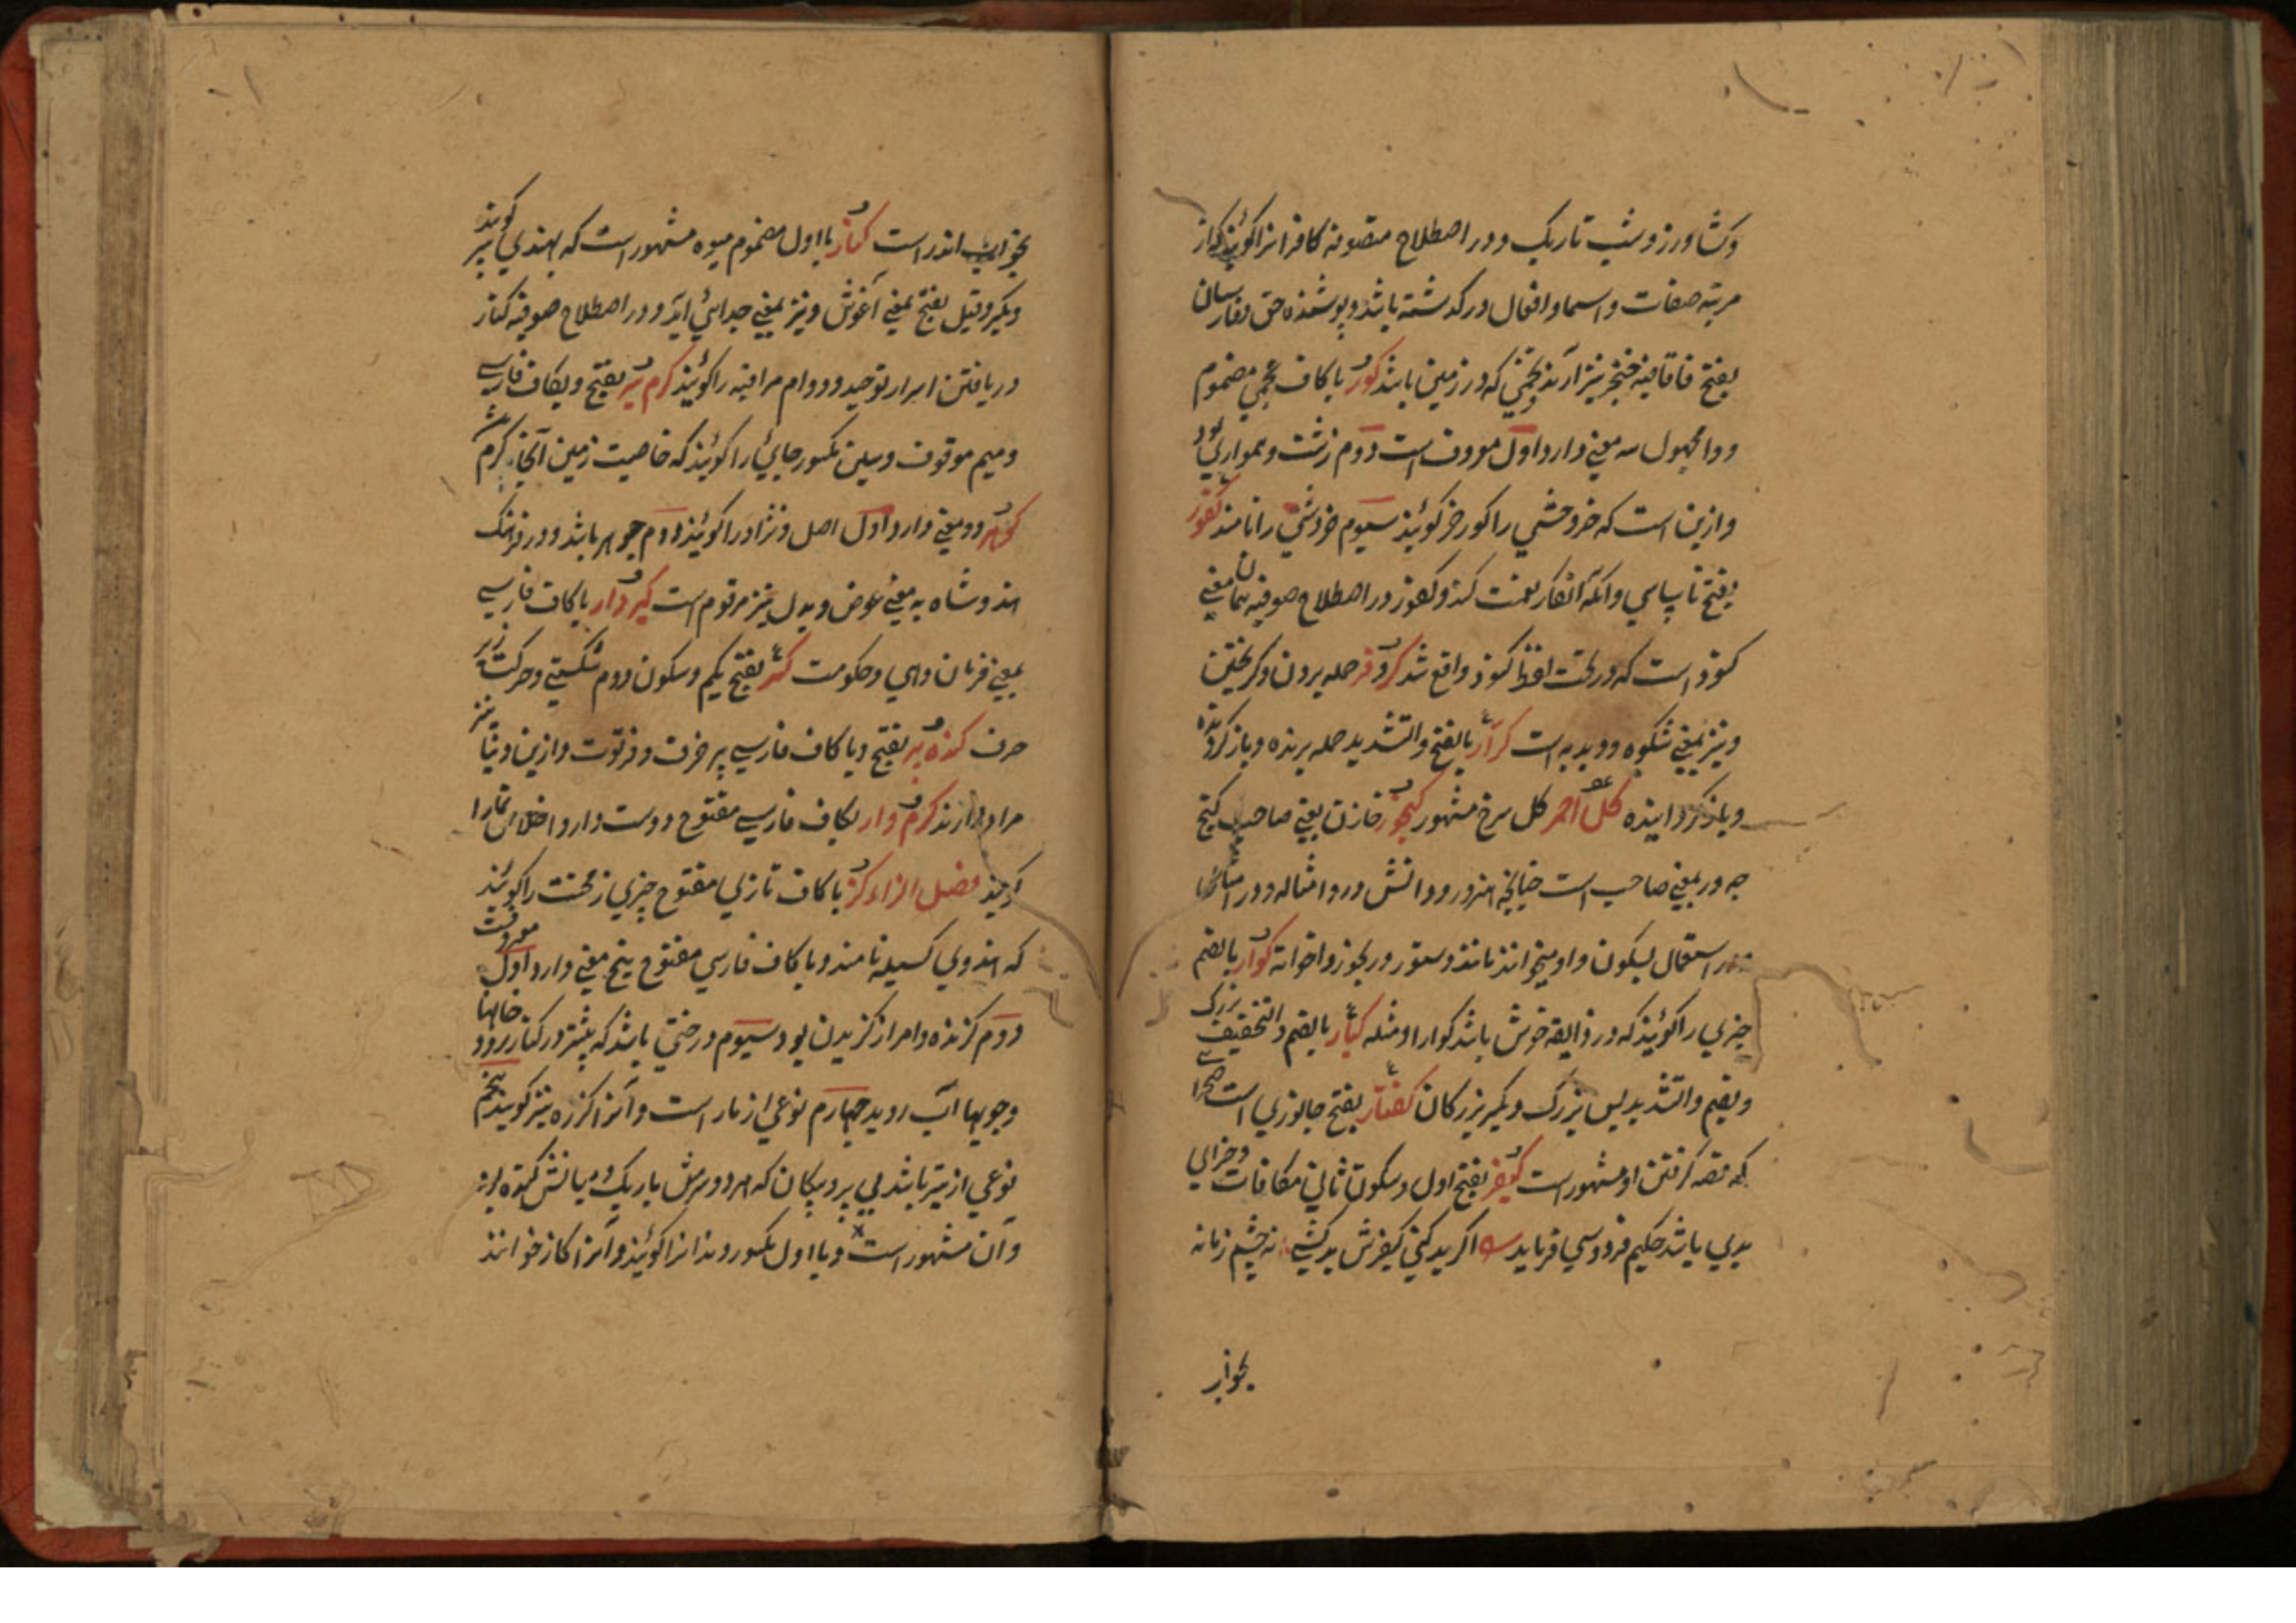 وکشاورز و شب تاریک و در اصطلاح متصوفه کافر انرا کویند که از
مرتبه صفات و اسما و افعال در کدشته باشد و پوشنده حق کفار بسان
بفتح فا قافیه خنجر نیز آرند تخمی که در زمین باشد کور با کاف عجمی مضموم
و واو مجهول سه معنی دارد اول معروف است دوم زشت و همواری بود
و ازین است که خر وحشی را کور خر کویند سیوم خر دشتی را نامند کفور
بفتح ناسپاسی و آنکه انکار نعمت کند و کفور در اصطلاح صوفیه همان معنی
کفر است که در تحت لفظ کفر واقع شد کر و فر حمله بردن و کریختن
و نیز بمعنی شکوه و دبدبه است کرار بالفتح والتشدید حمله برنده و باز کردنده
و باز کرداننده کل احمر کل سرخ مشهور کنجور خازن یعنی صاحب کنج
چه ور بمعنی صاحب است چنانچه هنرور و دانشور و امثاله و در
در استعمال بسکون واو میخوانند مانند دستور و رنجور و اخواته کوار بالضم
چیزی را کویند که در ذایقه خوش باشد کوارا و مثله کبار بالضم والتخفیف بزرک
و بضم والتشدید بس بزرک و بکسر بزرکان کفتار بفتح جانوری است صحرایی
که قصه کرفتن او مشهور است کیفر بفتح اول و سکون ثانی مکافات و جزای
بدی باشد حکیم فردوسی فرماید اکر بد کنی کیفرش بد کشی نه چشم زمانه
بخواب
بخواب اندر است کنار با اول مضموم میوه مشهور است که بهندی بیر کویند
و بکسر و قیل بفتح بمعنی آغوش و نیز بمعنی جدائی آید و در اصطلاح صوفیه کنار
دریافتن اسرار توحید و دوام مراقبه را کویند کرم سیر بفتح و بکاف فارسی
و میم موقوف و سین مکسور جائی را کویند که خاصیت زمین آنجا کرم
کوهر دو معنی دارد اول اصل و نژاد را کویند دوم جوهر باشد و در فرهنک
هندوشاه به معنی عوض و بدل نیز مرقوم است کیر و دار با کاف فارسی
بمعنی فرمان دهی و حکومت کسر بفتح یکم و سکون دوم شکستن و حرکت زیر
حرف کنده پیر بفتح و با کاف فارسی پیر خرف و فرتوت و ازین دنیا نیز
مراد دارند کرم دار بکاف فارسی مفتوح دوست دار و اخلاص
کویند فصل الزاء کز با کاف تازی مفتوح چیزی زمخت را کویند
که هندوی کسیله نامند و با کاف فارسی مفتوح پنج معنی دارد اول معروفست
دوم کزنده و امر از کزیدن بود سیوم درختی باشد که بیشتر در کنار رود خانها
و جویهاء آب روید چهارم نوعی از مار است و آنرا کرزه نیز کویند پنجم
نوعی از تیر باشد بی پر و پیکان که هر دو سرش باریک و میانش کنده بود
و آن مشهور است و با اول مکسور دندانرا کویند و آنرا کاز خوانند